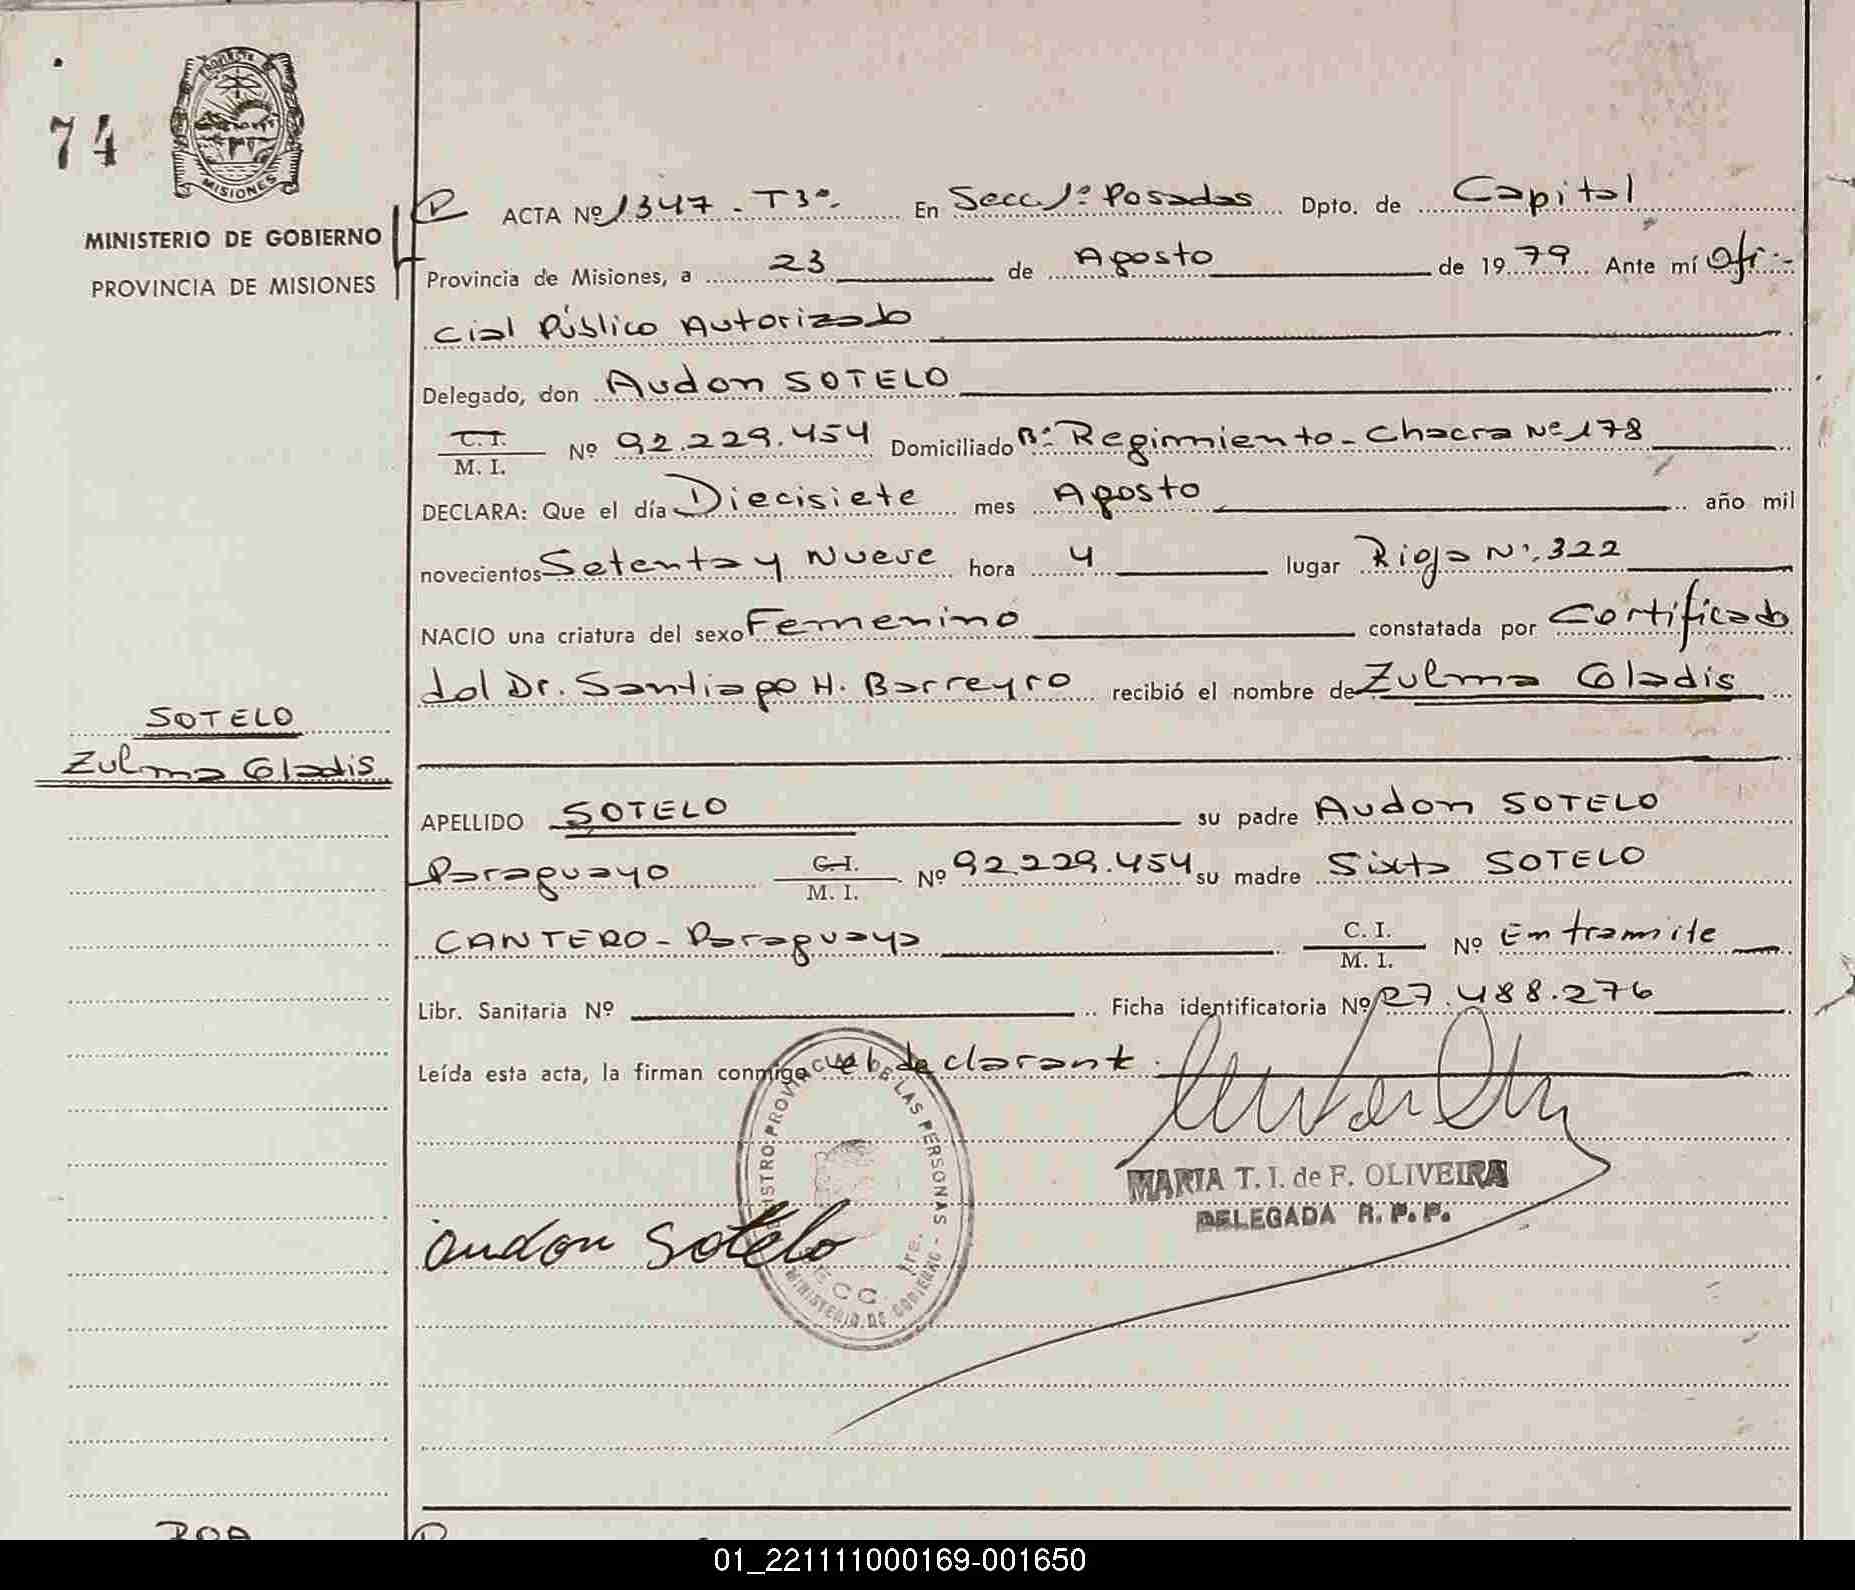 74
PROVINCIA
MISIONES
MINISTERIO DE GOBIERNO
PROVINCIA DE MISIONES
SOTELO
Zulma Gladis
ACTA Nº 1347 - T3º. En Secc 1º Posadas Dpto. de Capital
Provincia de Misiones, a 23 de Agosto de 1979 Ante mí Ofi-
cial Público Autorizado
Delegado, don Audon SOTELO
C. I. / M. I. Nº 92.229.454 Domiciliado Bº Regimiento - Chacra Nº 178
DECLARA: Que el día Diecisiete mes Agosto año mil
novecientos Setenta y Nueve hora 4 lugar Rioja Nº. 322
NACIO una criatura del sexo Femenino constatada por Certificado
del Dr. Santiago H. Barreyro recibió el nombre de Zulma Gladis
APELLIDO SOTELO su padre Audon SOTELO
Paraguayo C. I. / M. I. Nº 92.229.454 su madre Sixta SOTELO
CANTERO - Paraguaya C. I. / M. I. Nº En tramite
Libr. Sanitaria Nº Ficha identificatoria Nº 27.488.276
Leída esta acta, la firman conmigo el declarante.
REGISTRO PROVINCIAL DE LAS PERSONAS -
SECC. 1re.
MINISTERIO DE GOBIERNO -
MARIA T. I. de F. OLIVEIRA
DELEGADA R. P. P.
audon sotelo
ROA
01_221111000169-001650